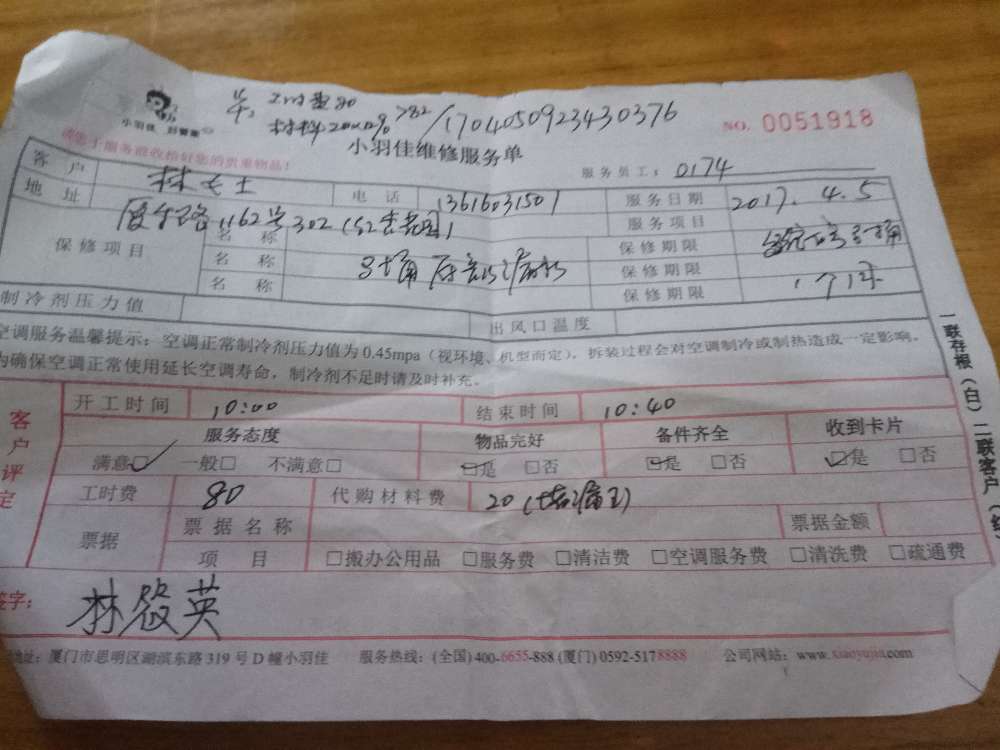 小羽佳 好管家
工时费80
材料20×10% >82/170405092343 0376
NO. 0051918
小羽佳维修服务单
服务员工: 0174
请您于服务前收拾好您的贵重物品!
客户 林女士 电话 13616031501 服务日期 2017.4.5
地址 厦禾路1162号302 服务项目
保修项目 名称 保修期限
名称 保修期限
名称 保修期限 1个月
制冷剂压力值 出风口温度
空调服务温馨提示:空调正常制冷剂压力值为0.45mpa(视环境、机型而定),拆装过程会对空调制冷或制热造成一定影响。
为确保空调正常使用延长空调寿命,制冷剂不足时请及时补充。
客户评定
开工时间 10:00 结束时间 10:40
服务态度 物品完好 备件齐全 收到卡片
满意□ 一般□ 不满意□ □是 □否 □是 □否 □是 □否
工时费 80 代购材料费 20(堵漏王)
票据 票据名称 票据金额
项目 □搬办公用品 □服务费 □清洁费 □空调服务费 □清洗费 □疏通费
签字: 林 英
地址:厦门市思明区湖滨东路319号D幢小羽佳 服务热线:(全国)400-6655-888 (厦门)0592-5178888 公司网站:www.xiaoyujia.com
一联存根(白) 二联客户(红)